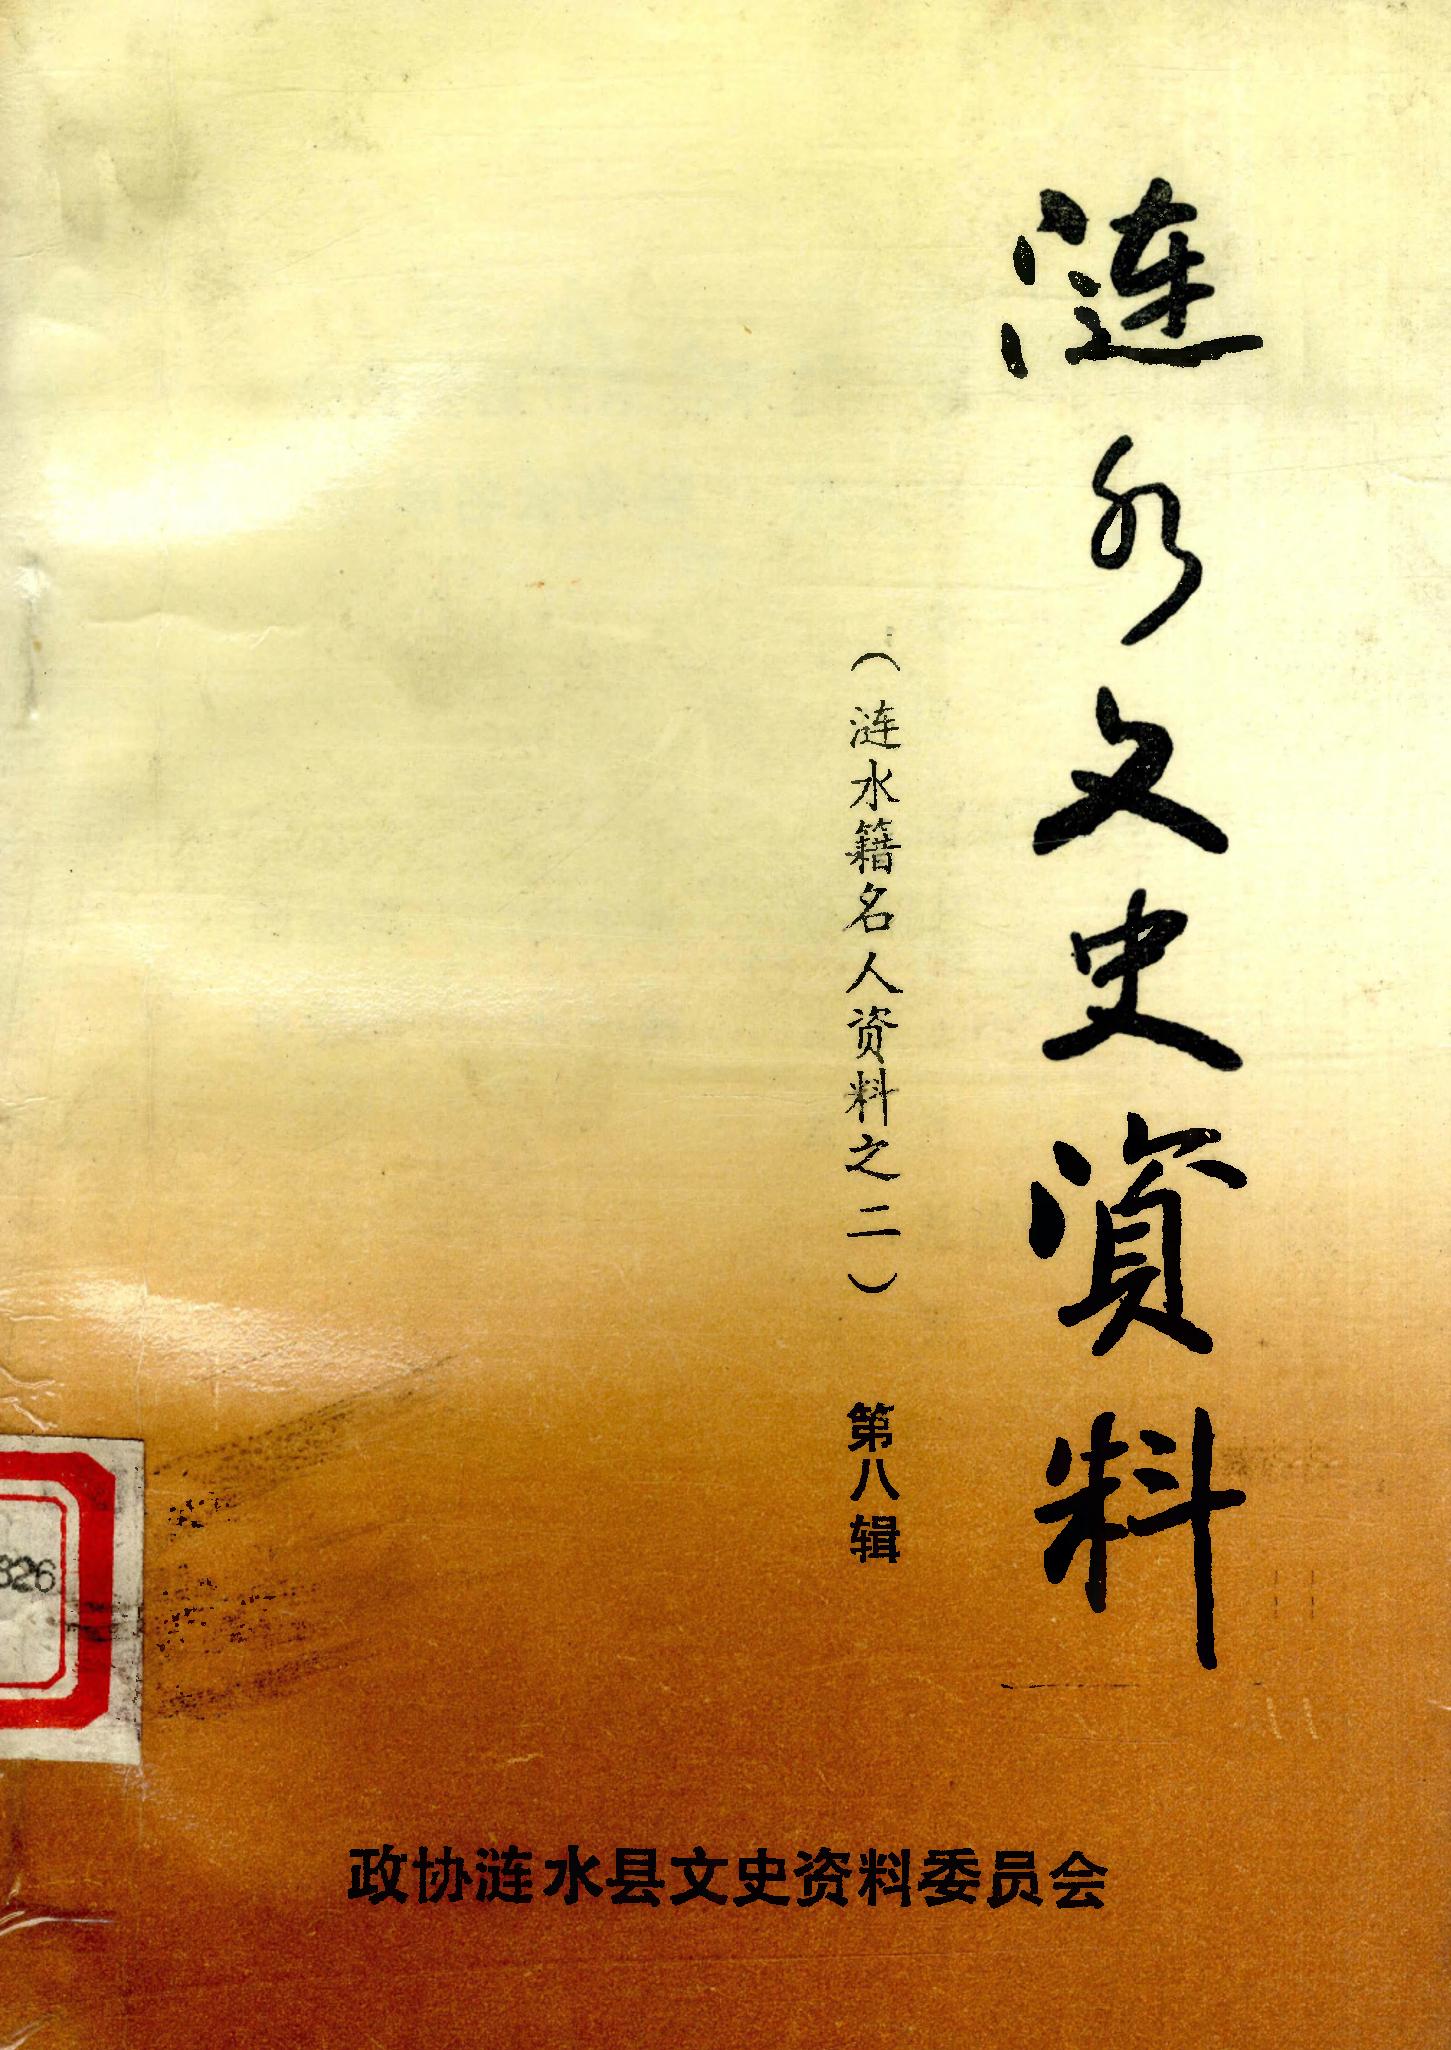 漣水文史資料
（涟水籍名人资料之二）
第八辑
政协涟水县文史资料委员会
826